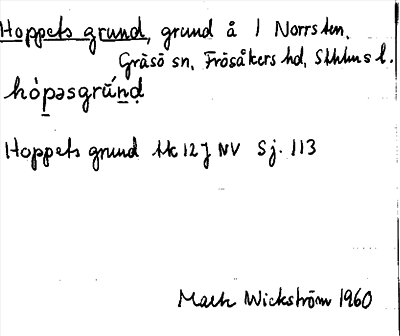 Hoppets grund, grund å 1 Norrsten,
Gräsö sn, Frösåkers hd, Sthlms l.
hópəsgrún̠ḍ
Hoppets grund 12 J NV Sj. 113
Wickström 1960